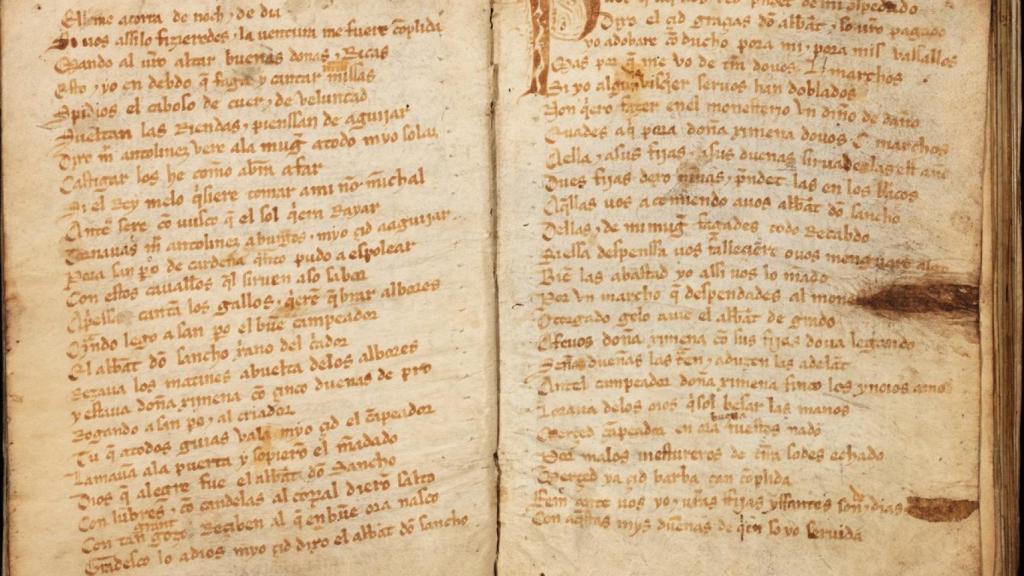 Ella me acorra de noch, de dia
Si vos assi lo fizieredes, la ventura me fuere cõplida
Mando al uro altar buenas donas, Ricas
Esto, yo en debdo q̃ faga y cantar missas
Spidios el caboso de cuer, de veluntad
Sueltan las Riendas, pienssan de aguijar
Dixo mĩ antolinez vere ala mug̃ atodo myo solaz
Castigar los he como abrã a far
Si el Rey melo q̃siere tomar ami nõ minchal
Antẽ sere cõ vusco q̃ el sol q̃era Rayar
Tornauas mĩ antolinez a burgos, myo çid aaguijar
Pora san pº de cardeña q̃nto pudo a espolear
Con estos cauallos q̃l siruen aso sabor
Apessa cantã los gallos, q̃erẽ q̃brar albores
Q̃ndo lego a san pº el buẽ campeador
El abbat dõ sancho xano del c̃ador
Rezaua los matines abuelta delos albores
y estaua doña ximena cõ çinco duenas de pro
Rogando a san pº, al criador
Tu q̃ atodos guias vala myo çid el cãpeador
Lamauã ala puerta y sopierõ el mãdado
Dios q̃ alegre fue el abbat dõ sancho
Con lũbres, cõ candelas al corral dierõ salto
Con tan grant gozo Reçiben al q̃ en buẽ ora nasco
Gradesco lo adios myo çid dixo el abbat dõ sancho
de mi ospedado
Dixo el çid graçias dõ abbat, so uro pagado
yo adobare cõ ducho pora mi, pora mis vassallos
Mas por q̃ me vo de tr̃ra douos L marchos
Si yo algun visq̃er seruos han doblados
Non q̃ero fazer enel monesterio vn diño de daño
Euades aq̃ pora doña ximena douos C marchos
Aella, asus fijas, asus duenas siruades las est año
Dues fijas dexo niñas, p̃ndet las en los braços
Aq̃llas vos acomiendo auos abbat dõ sancho
Dellas, de mi mug̃ fagades todo Recabdo
Si essa despenssa vos falleçiere o uos menguare algo
Biẽ las abastad yo assi vos lo mando
Por vn marcho q̃ despendades al mone
Otorgado gelo auie el abbat de grado
Afeuos doña ximena cõ sus fijas do ua legando
Señas dueñas las traẽ, aduzen las adelãt
Antel campeador doña ximena finco los ynoios amos
Loraua delos oios q̃sol besar las manos
Merçed cãpeador en ora buena fuestes nado
Por malos mestureros de tr̃ra sodes echado
Merçed ya çid barba tan cõplida
Fem ante vos yo, uras ffijas yffantes son, de dias
Con aq̃stas mys duenas de q̃en so yo seruida